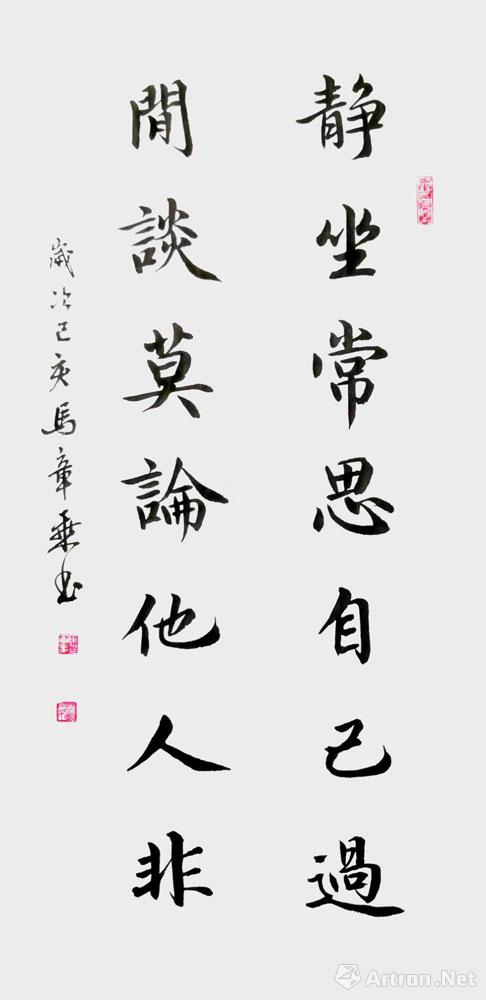 静坐常思自己過
閒談莫論他人非
歲次己亥馬章乘书
Artron.Net